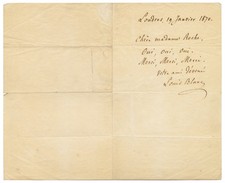 Londres 19 Janvier 1870.
Chère madame
Oui, oui, oui.
Merci, Merci, Merci.
Votre ami dévoué
Louis Blanc